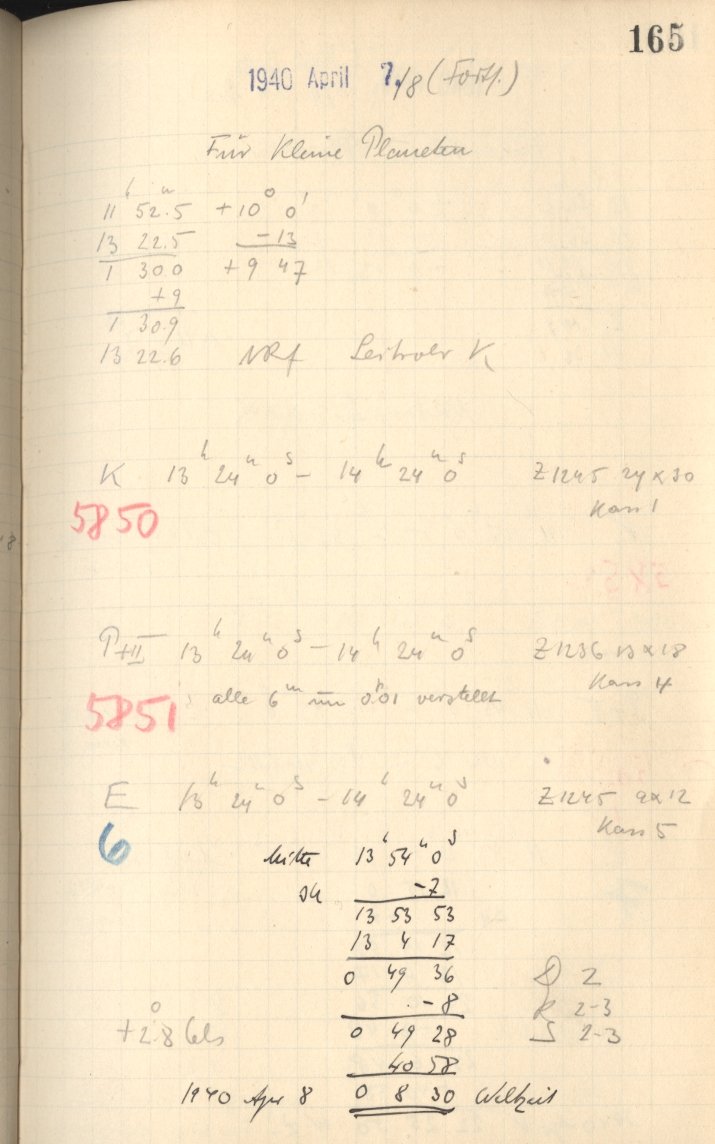 165
1940 April 7./8 (Forts.)
Für Kleine Planeten
11 h 52.5 m +10° 0'
13 22.5 -13
1 30.0 +9 47
+9
1 30.9
13 22.6 Leitrohr K
K 13h 24m 0s - 14h 24m 0s Z1245 24x30
5850 Kass 1
P+II 13h 24m 0s - 14h 24m 0s Z1236 13x18
Kass 4
5851 alle 6m um 0.01 verstellt
E 13h 24m 0s - 14h 24m 0s Z1245 9x12
6 Kass 5
Mitte 13h 54m 0s
-7
13 53 53
13 4 17
0 49 36 D 2
-8 R 2-3
+2.8° Cels 0 49 28 S 2-3
40 58
1940 Apr 8 0 8 30 Weltzeit